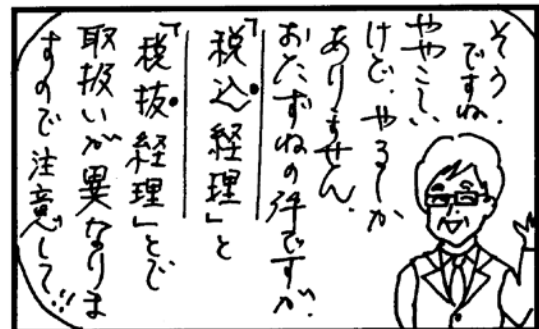 そう、
ですね
ややこしい
けど、やるしか
ありません。
おたずねの件ですが、
「税込経理」と
「税抜経理」とで
取扱いが異なりま
すので注意して!!